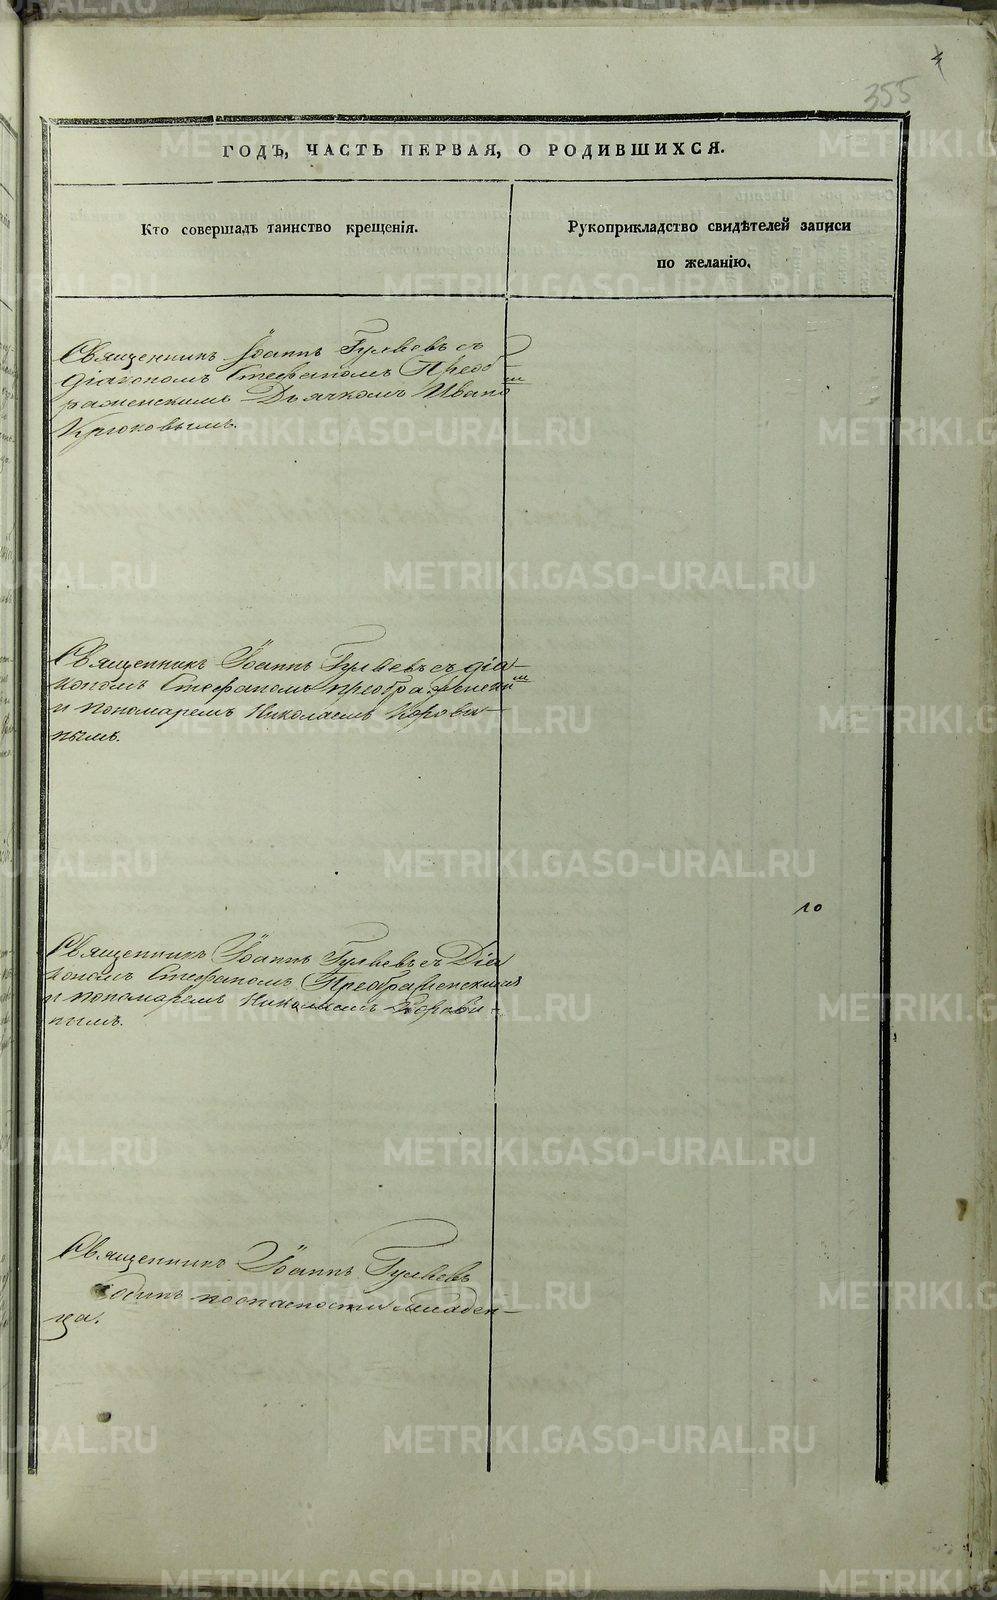 4
355
ГОДЪ, ЧАСТЬ ПЕРВАЯ, О РОДИВШИХСЯ.
Кто совершалъ таинство крещенія.
Рукоприкладство свидѣтелей записи
по желанію.
Священникъ Іоаннъ Гуляевъ съ
діакономъ Стефаномъ Преоб-
раженскимъ Дьячкомъ Ивано мъ
Крюковымъ.
Священникъ Іоаннъ Гуляевъ съ діа-
кономъ Стефаномъ преображенски мъ
и пономаремъ Николаемъ Корови-
нымъ.
10
Священникъ Іоаннъ Гуляевъ съ Діа
кономъ Стефаномъ Преображенскимъ
и пономаремъ Николаемъ Корови-
нымъ.
Священникъ Іоаннъ Гуляевъ
одинъ поопасности младен-
ца.
METRIKI.GASO-URAL.RU